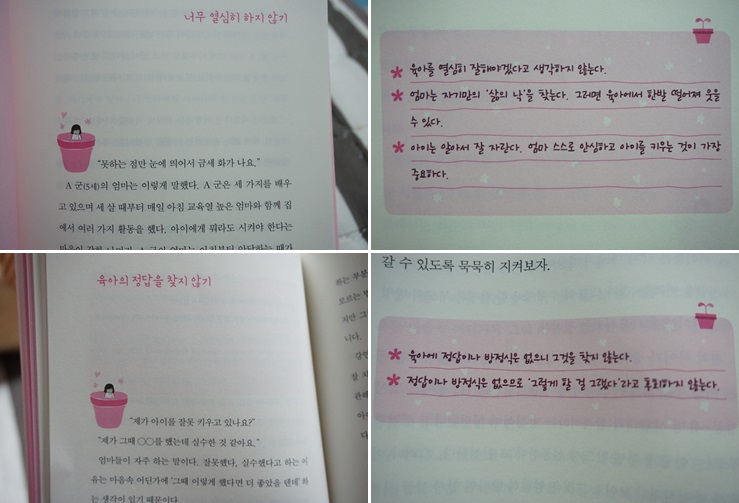 너무 열심히 하지 않기
"못하는 점만 눈에 띄어서 금세 화가 나요."
A 군(5세)의 엄마는 이렇게 말했다. A 군은 세 가지를 배우
고 있으며 세 살 때부터 매일 아침 교육열 높은 엄마와 함께 집
에서 여러 가지 활동을 했다. 아이에게 뭐라도 시켜야 한다는
육아를 열심히 잘해야겠다고 생각하지 않는다.
엄마는 자기만의 '삶의 낙'을 찾는다. 그러면 육아에서 한발 떨어져 웃을
수 있다.
아이는 알아서 잘 자란다. 엄마 스스로 안심하고 아이를 키우는 것이 가장
중요하다.
육아의 정답을 찾지 않기
"제가 아이를 잘못 키우고 있나요?"
"제가 그때 ○○를 했는데 실수한 것 같아요."
엄마들이 자주 하는 말이다. 잘못했다, 실수했다고 하는 이
유는 마음속 어딘가에 '그때 이렇게 했다면 더 좋았을 텐데' 하
는 생각이 있기 때문이다.
하는 부분
모르는 
지만 그
니다.
잘 치
아이
갈 수 있도록 묵묵히 지켜보자.
육아에 정답이나 방정식은 없으니 그것을 찾지 않는다.
정답이나 방정식은 없으므로 '그렇게 할 걸 그랬다'라고 후회하지 않는다.